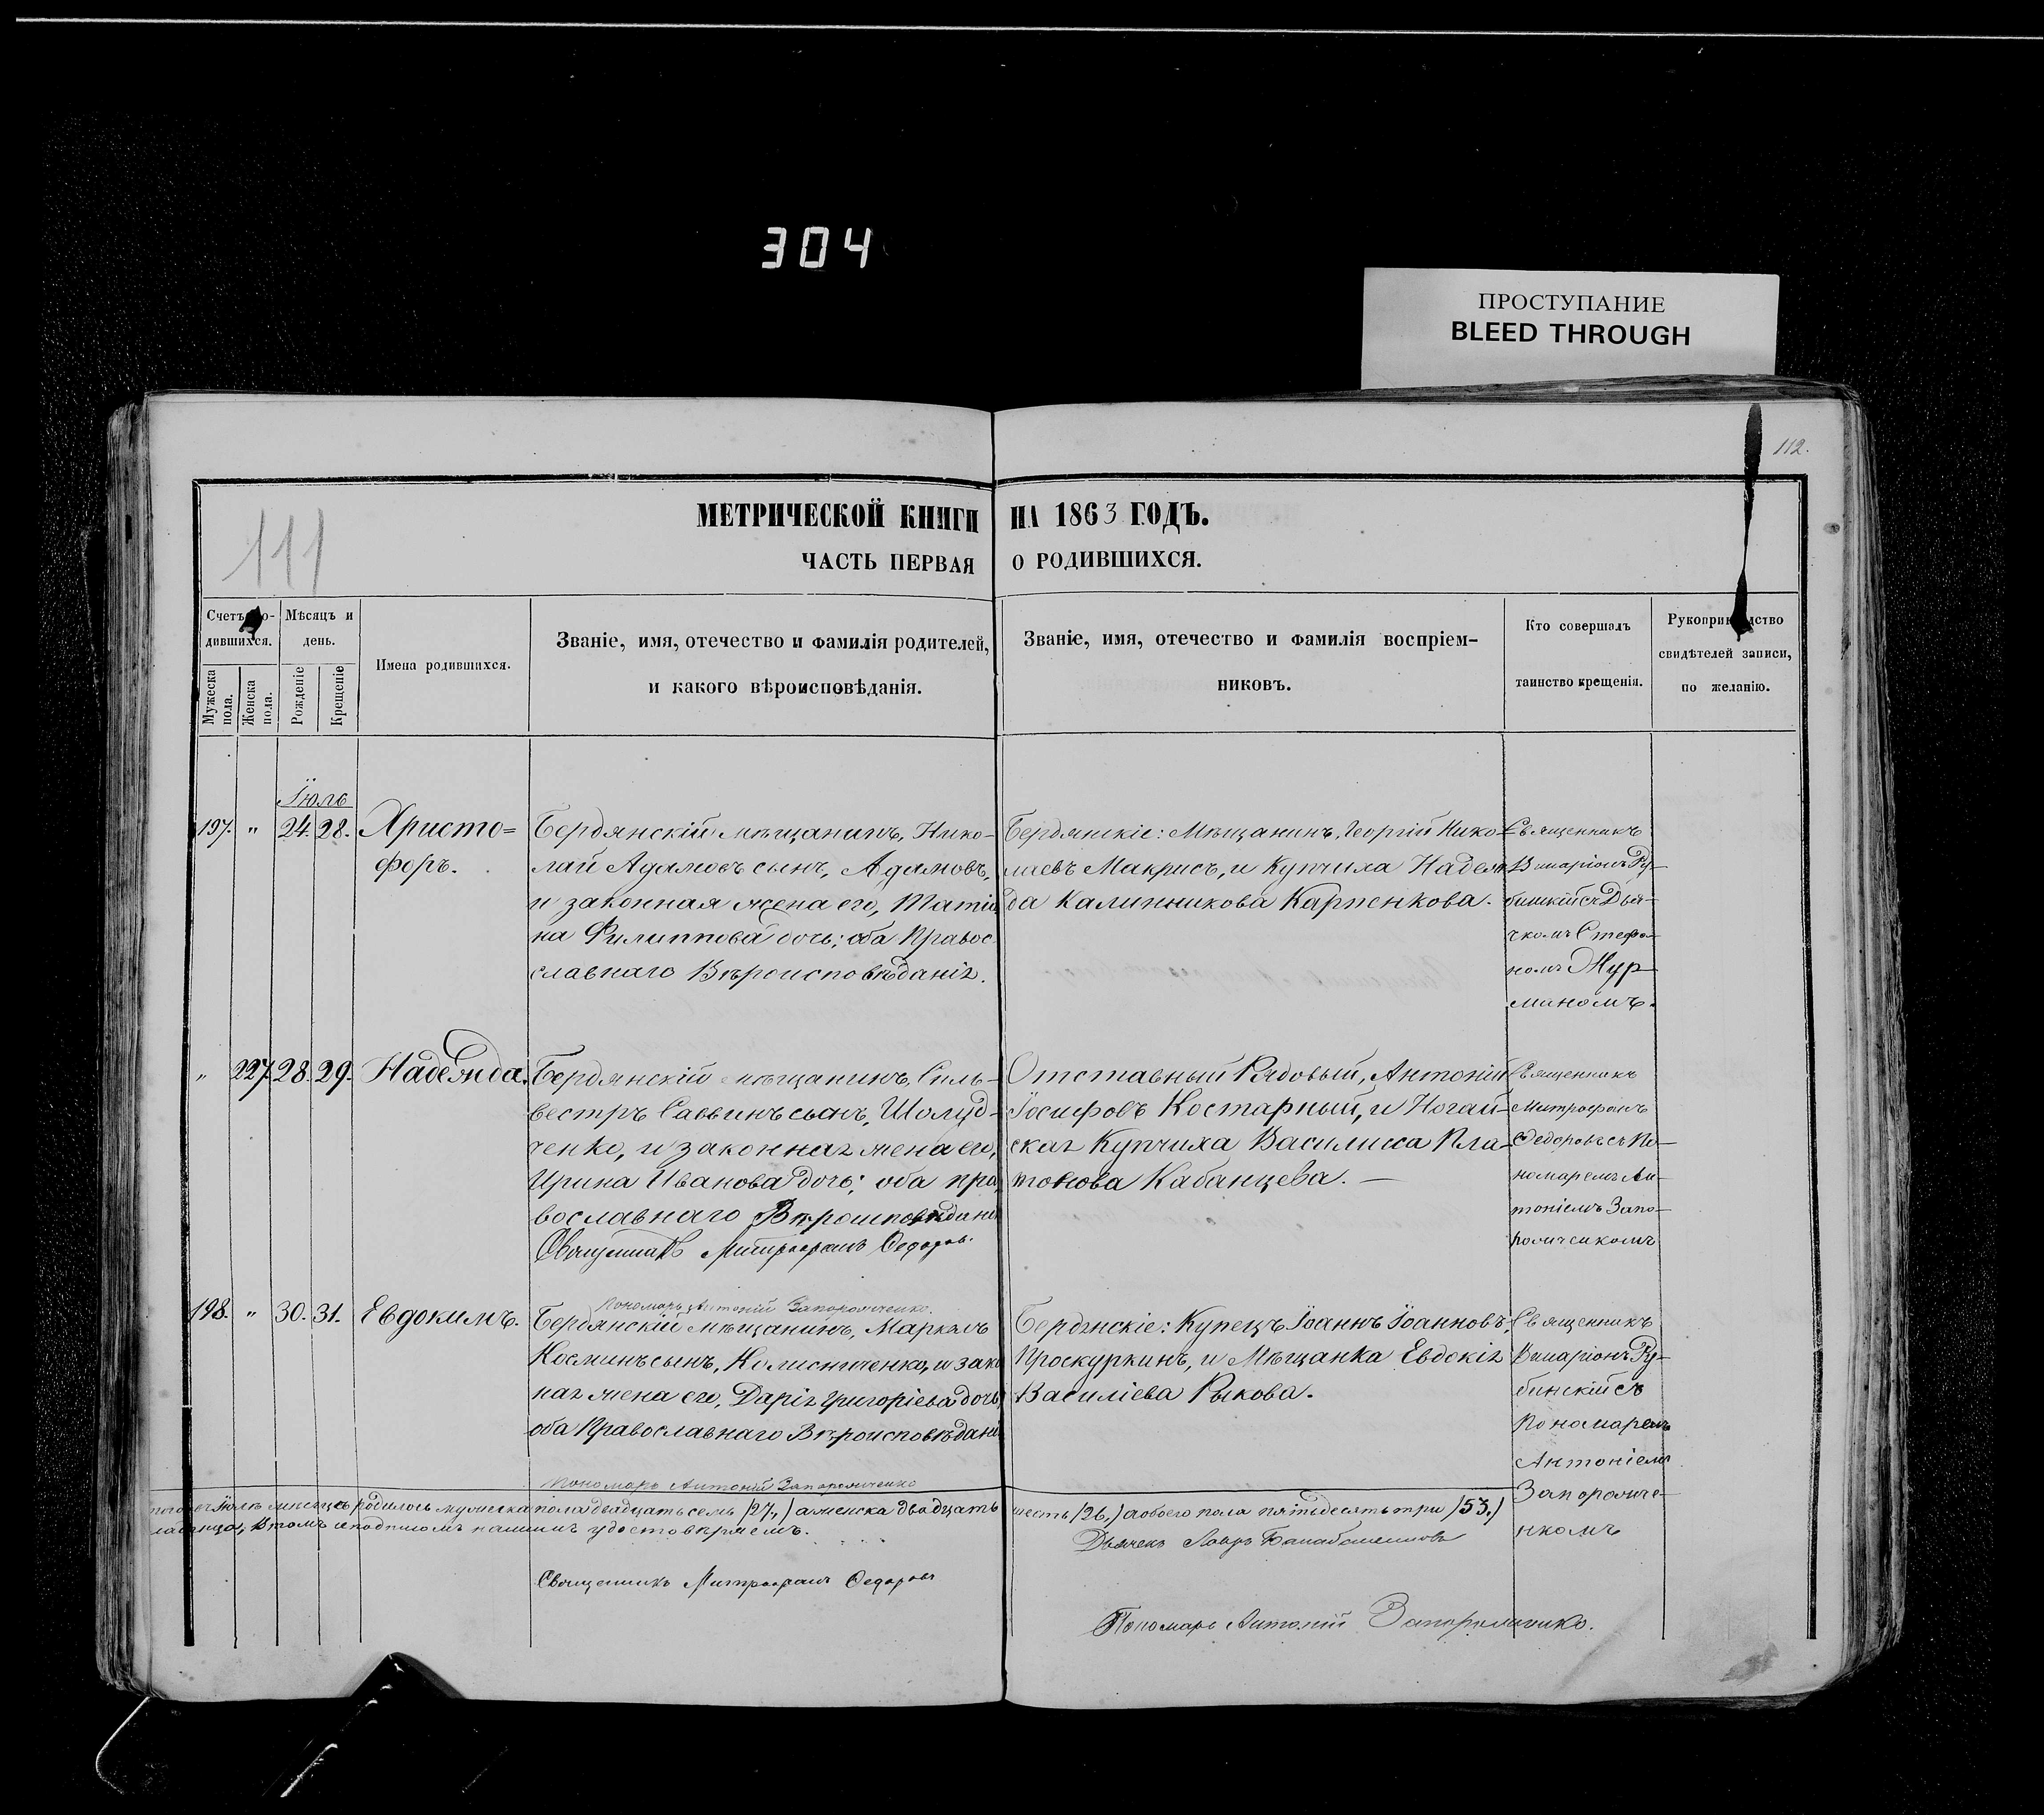 304
ПРОСТУПАНИЕ
BLEED THROUGH
112.
111
МЕТРИЧЕСКОЙ КНИГИ НА 1863 ГОДЪ.
ЧАСТЬ ПЕРВАЯ О РОДИВШИХСЯ.
Счетъ ро-
дившихся.
Мужеска пола.
Женска пола.
Мѣсяцъ и
день.
Рожденіе
Крещеніе
Имена родившихся.
Званіе, имя, отечество и фамилія родителей,
и какого вѣроисповѣданія.
Званіе, имя, отечество и фамилія воспріем-
никовъ.
Кто совершалъ
таинство крещенія.
Рукоприкладство
свидѣтелей записи,
по желанію.
Іюль
197. " 24. 28. Христо=
форъ.
Бердянскій мѣщанинъ, Нико-
лай Адамовъ сынъ, Адамовъ,
и законная жена его, Татіа
на Филиппова дочь; оба Правос
славнаго Вѣроисповѣданія.
Бердянскіе: Мѣщанинъ, Георгій Нико
лаевъ Макрисъ, и Купчиха Надеж
да Калинникова Карпенкова.
Священникъ
Виларіонъ Ру-
бинскій съ Дья-
чкомъ Стефа-
номъ Жур
маномъ.
" 227. 28. 29. Надежда.
Бердянскій мѣщанинъ, Силь-
вестръ Саввинъ сынъ, Шолуд-
ченко, и законная жена его,
Ирина Иванова дочь; оба пра
вославнаго Вѣроисповѣдані
Священникъ Митрофанъ Федоровъ
Пономарь Антоній Запорожченко.
Отставный Рядовый, Антоній
Іосифовъ Костарный, и Ногай-
ская Купчиха Василиса Пла-
тонова Кабанцева. —
Священникъ
Митрофанъ
Федоровъ съ По-
номаремъ Ан-
тоніемъ Запо-
рожченкомъ
198. " 30. 31. Евдокимъ.
Бердянскій мѣщанинъ, Маркелъ
Косминъ сынъ, Колисниченко, и зако
ная жена его, Дарія Григоріева дочь
оба Православнаго Вѣроисповѣдані
Пономарь Антоній Запорожченко
Бердянскіе: Купецъ Іоаннъ Іоанновъ
Проскуркинъ, и Мѣщанка Евдокія
Василіева Рыкова.
Священникъ
Виларіонъ Ру-
бинскій съ
Пономаремъ
Антоніемъ
Запорожче-
нкомъ
Іюлѣ мѣсяцѣ родилось мужеска пола двадцать семь /27,/ а женска двадцать шесть /26,/ а обоего пола пятьдесятъ три /53./
Втомъ и подписомъ нашимъ удостовѣряемъ.
Священникъ Митрофанъ Федоровъ
Дьячекъ Лавръ
Пономарь Антоній Запорожченко.